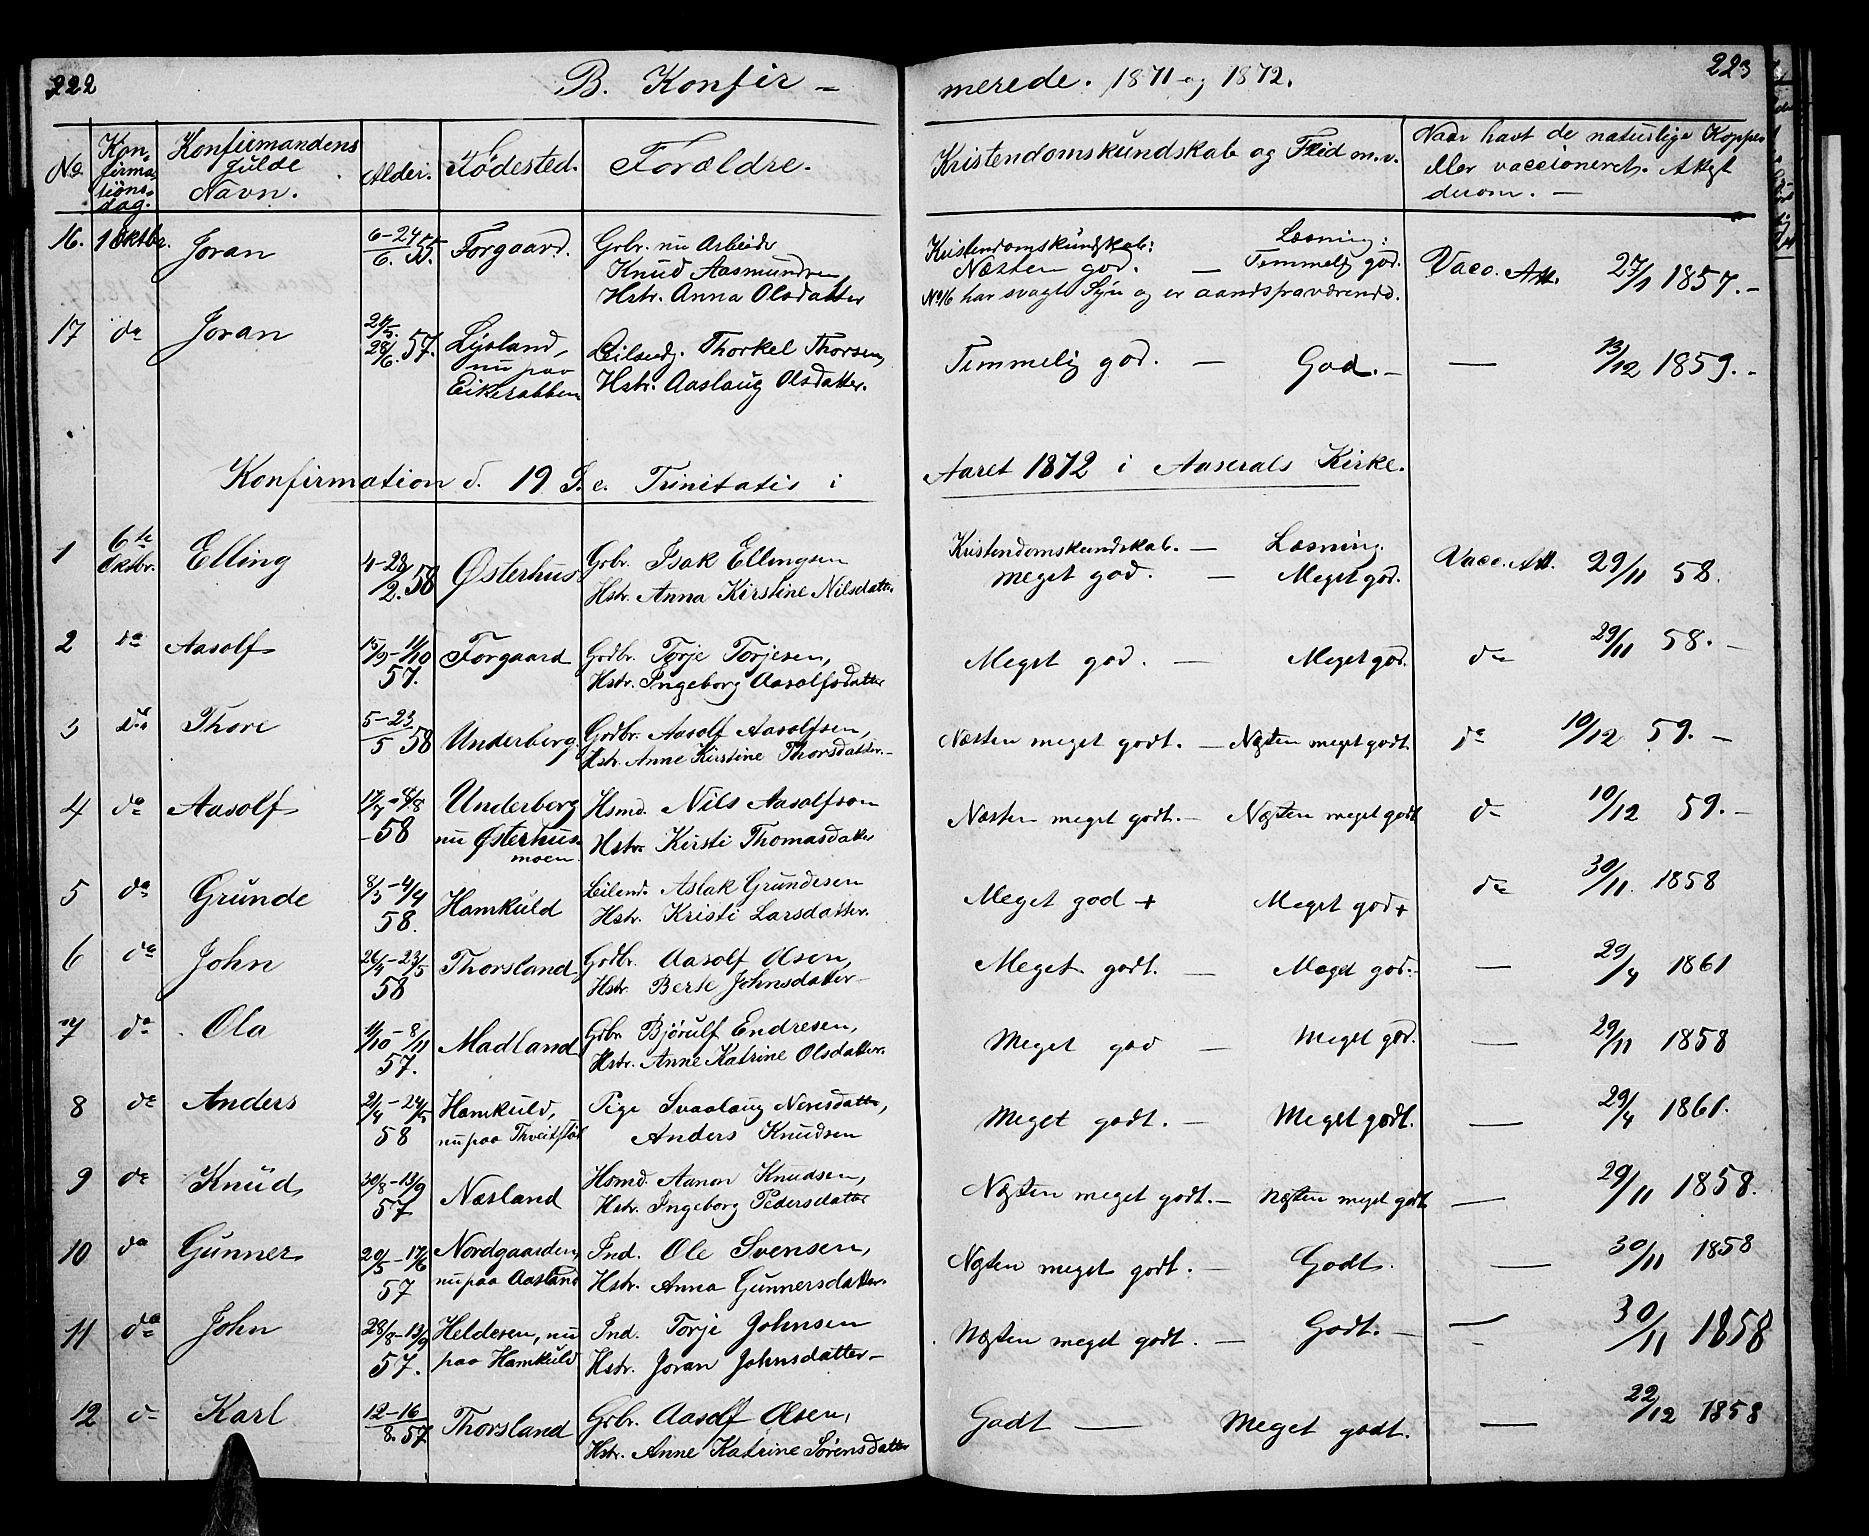 222
B. Konfir-
merede. 1871 og 1872.
223
No.
Kon-
firma-
tions-
dag.
Konfirmandens
fulde
Navn.
Alder.
Fødested.
Forældre.
Kristendomskundskab og Flid m.v.
Naar havt de naturlige Kopper
eller vaccioneret. Attest
derom. —
16. 1 Oktbr. Joran 6-24/6. 55. Forgaard. Grbr. nu Arbeider
Knud Aasmundsen,
Hstr. Anna Olsdatter
Kristendomskundskab: Læsning:
Næsten god. — Temmelig god.
No 16 har svagt Syn og er aandsfraværende.
Vacc. Att. 27/1 1857. -
17 do Joran 24/5. 28/6. 57. Ljosland,
nu paa
Eikerabben
Leilendg. Thorkel Thorsen,
Hstr. Aaslaug Olsdatter.
Temmelig god. — God. - — 13/12 1859. -
Konfirmation d. 19 S. e. Trinitatis i Aaret 1872 i Aaserals Kirke.
1 6te Oktbr. Elling 4-28/2. 58 Østerhus Grbr. Isak Ellingsen
Hstr. Anna Kirstine Nilsdatter
Kristendomskundskab. — Læsning.
meget god. — Meget god.
Vacc. Att. 29/11 58.
2 do Aasolf 15/9-11/10 57. Forgaard Grdbr. Torje Torjesen,
Hstr. Ingeborg Aasolfsdatter
Meget god. — Meget god. do 29/11 58. -
3 do Thore 5-23/5 58 Underberg Grdbr. Aasolf Aasolfsen,
Hstr. Anne Kirstine Thorsdatter. -
Næsten meget godt. — Næsten meget godt. do 10/12 59. -
4 do Aasolf 17/7-8/8 - 58 Underberg
nu Østerhus-
moen.
Hsmd. Nils Aasolfson
Hstr. Kirsti Thomasdatter
Næsten meget godt. — Næsten meget godt do 10/12 59. -
5 do Grunde 8/3-4/4 58. Hamkuld Leilend. Aslak Grundesen
Hstr. Kristi Larsdatter.
Meget god + Meget god + do 30/11. 1858
6 do John 26/4-23/5 58 Thorsland Grdbr. Aasolf Olsen,
Hstr. Berte Johnsdatter -
Meget godt. — Meget god. - — 29/4 1861
7 do Ola 11/10-8/11 57. Madland Grbr. Bjørulf Endresen,
Hstr. Anne Katrine Olsdatter.
Meget god — Meget god. — 29/11 1858
8 do Anders 21/4-24/5 58 Hamkuld,
nu paa
Pige Svaalaug
Anders Knudsen
Meget godt. — Meget godt. — 29/4 1861.
9 do Knud 30/8-13/9 57 Næsland Hsmd. Aanon Knudsen,
Hstr. Ingeborg Pedersdatter
Næsten meget godt. — Næsten meget godt — 29/11 1858.
10 do Gunner 20/5-17/6 57 Nordgaarden,
nu paa Aasland
Ind. Ole Svensen,
Hstr. Anna Gunnersdatter.
Næsten meget godt. — Godt. — 30/11 1858
11 do John 28/8-13/9 57. Helderen, nu
paa Hamkuld
Ind. Torje Johnsen
Hstr. Joran Johnsdatter -
Næsten meget godt. — Godt. - — 30/11 1858
12 do Karl 12-16/8. 57 Thorsland Grbr. Aasolf Olsen,
Hstr. Anne Katrine Sørensdatter
Godt — Meget godt. — 22/12 1858